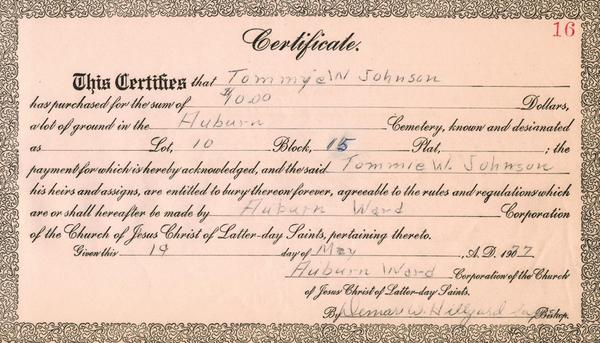 16
Certificate.
This Certifies that Tommye W Johnson
has purchased for the sum of $90.00 Dollars,
a lot of ground in the Auburn Cemetery, known and designated
as Lot, 10 Block, 15 Plat, ; the
payment for which is hereby acknowledged, and the said Tommie W. Johnson
his heirs and assigns, are entitled to bury thereon forever, agreeable to the rules and regulations which
are or shall hereafter be made by Auburn Ward Corporation
of the Church of Jesus Christ of Latter-day Saints, pertaining thereto.
Given this 19 day of May , A. D. 1977
Auburn Ward Corporation of the Church
of Jesus Christ of Latter-day Saints.
By W. Hillyard Bishop.